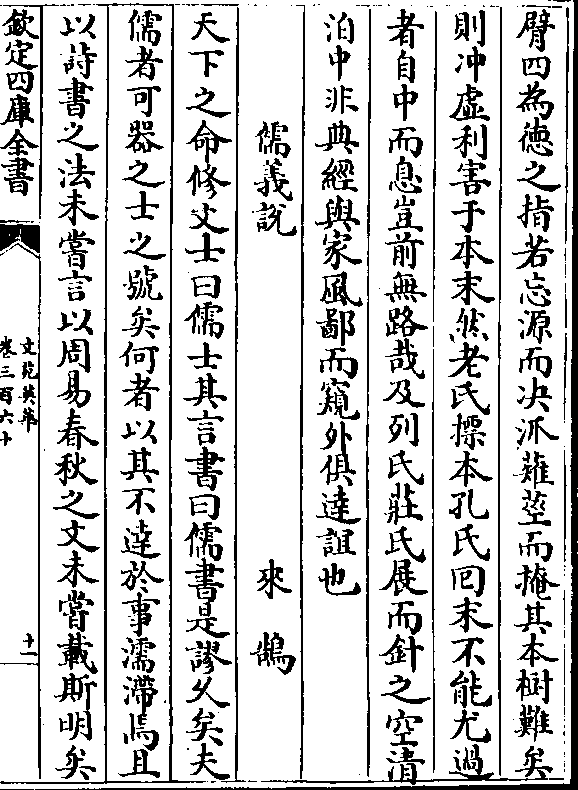 臂四為徳之指若忘源而决𣲖薙莖而掩其本樹難矣
則冲虚利害于本末然老氏標本孔氏回末不能尤過
者自中而息豈前無路哉及列氏莊氏展而針之空清
泊中非典經與家風鄙而窺外俱達詛也
儒義説
來鵠
天下之命修文士曰儒士其言書曰儒書是謬久矣夫
儒者可器之士之號矣何者以其不達於事濡滯焉且
以詩書之法未嘗言以周易春秋之文未嘗載斯明矣
欽定四庫全書
文苑英華
卷三百六十
十一